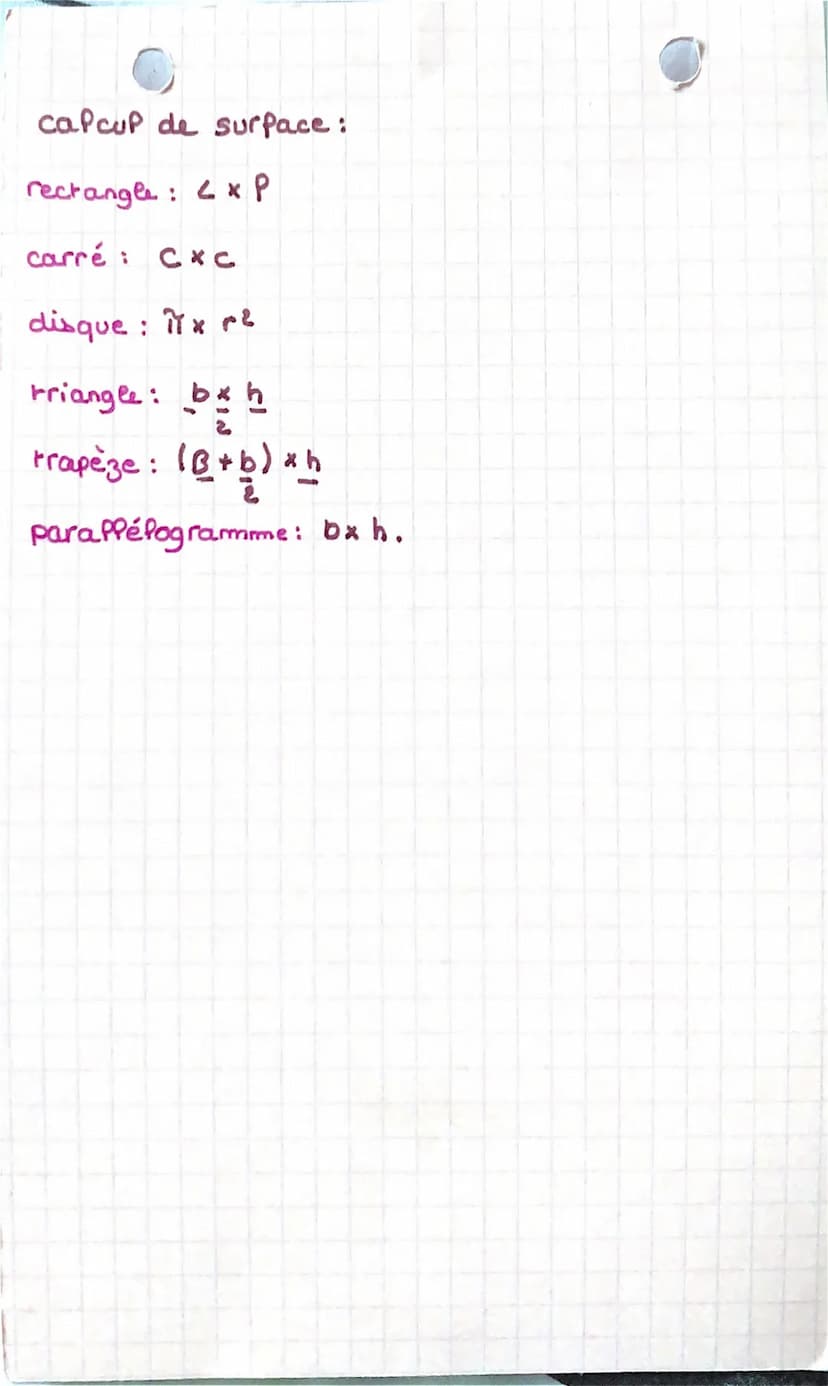 calcul de surface :
rectangle : L x l
carré : C x c
disque : π x r²
triangle : b x h
2
trapèze : (B + b) x h
2
parallélogramme : b x h.